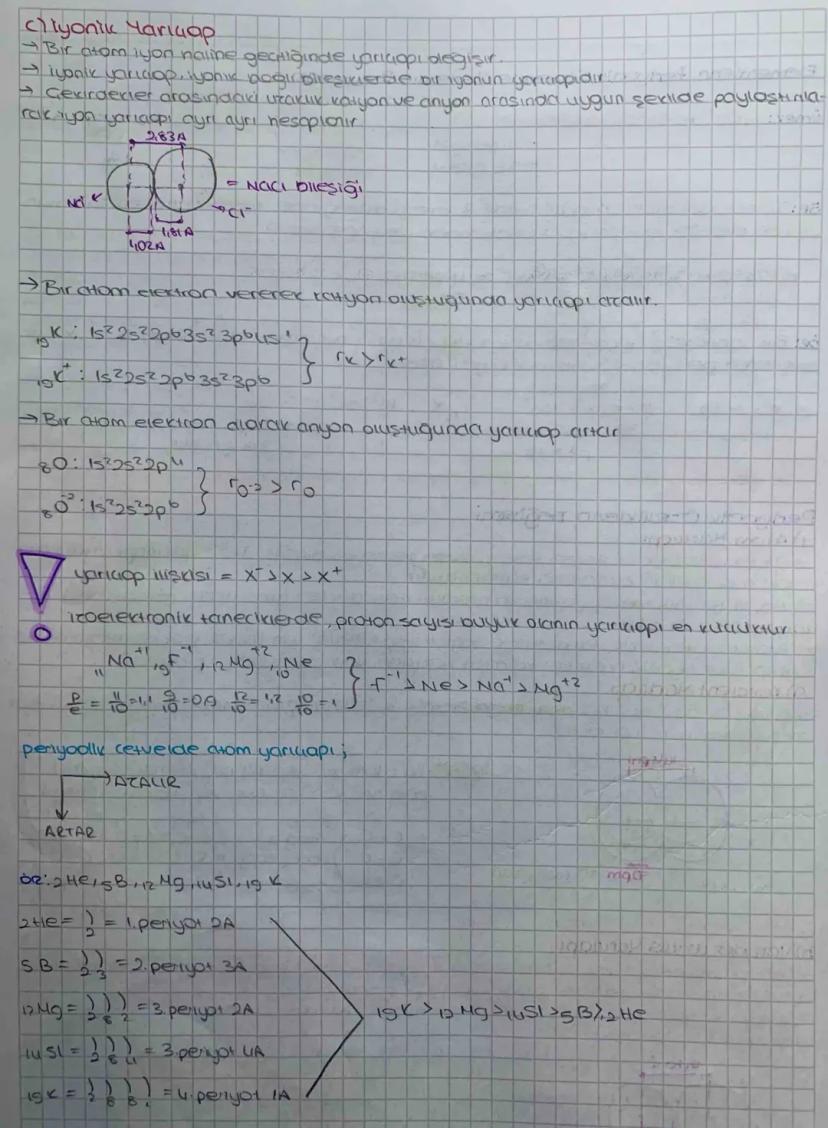 c) İyonik Yarıçap
→ Bir atom iyon haline geçtiğinde yarıçapı değişir.
→ iyonik yarıçap, iyonik bağlı bileşiklerde bir iyonun yarıçapıdır
→ Çekirdekler arasındaki uzaklık katyon ve anyon arasında uygun şekilde paylaştırıla-
rak iyon yarıçapı ayrı ayrı hesaplanır
2,83A
= NaCl bileşiği
Na⁺
Cl⁻
1,81A
1,02A
→ Bir atom elektron vererek katyon oluştuğunda yarıçapı azalır.
₁₉K : 1s² 2s² 2p⁶ 3s² 3p⁶ 4s¹
rK > rK⁺
₁₉K⁺ : 1s² 2s² 2p⁶ 3s² 3p⁶
→ Bir atom elektron alarak anyon oluştuğunda yarıçap artar
₈O : 1s² 2s² 2p⁴
rO⁻² > rO
₈O⁻² : 1s² 2s² 2p⁶
yarıçap ilişkisi = X⁻ > X > X⁺
izoelektronik taneciklerde, proton sayısı büyük olanın yarıçapı en küçüktür
₁₁Na⁺¹, ₉F⁻¹, ₁₂Mg⁺², ₁₀Ne
F⁻¹ > Ne > Na⁺¹ > Mg⁺²
p/e = 11/10 = 1,1 9/10 = 0,9 12/10 = 1,2 10/10 = 1
periyodik cetvelde atom yarıçapı;
→ AZALIR
ARTAR
ör: ₂He, ₅B, ₁₂Mg, ₁₄Si, ₁₉K
₂He = )₂ = 1. periyot 2A
₅B = )₂ )₃ = 2. periyot 3A
₁₂Mg = )₂ )₈ )₂ = 3. periyot 2A
₁₉K > ₁₂Mg > ₁₄Si > ₅B > ₂He
₁₄Si = )₂ )₈ )₄ = 3. periyot 4A
₁₉K = )₂ )₈ )₈ )₁ = 4. periyot 1A